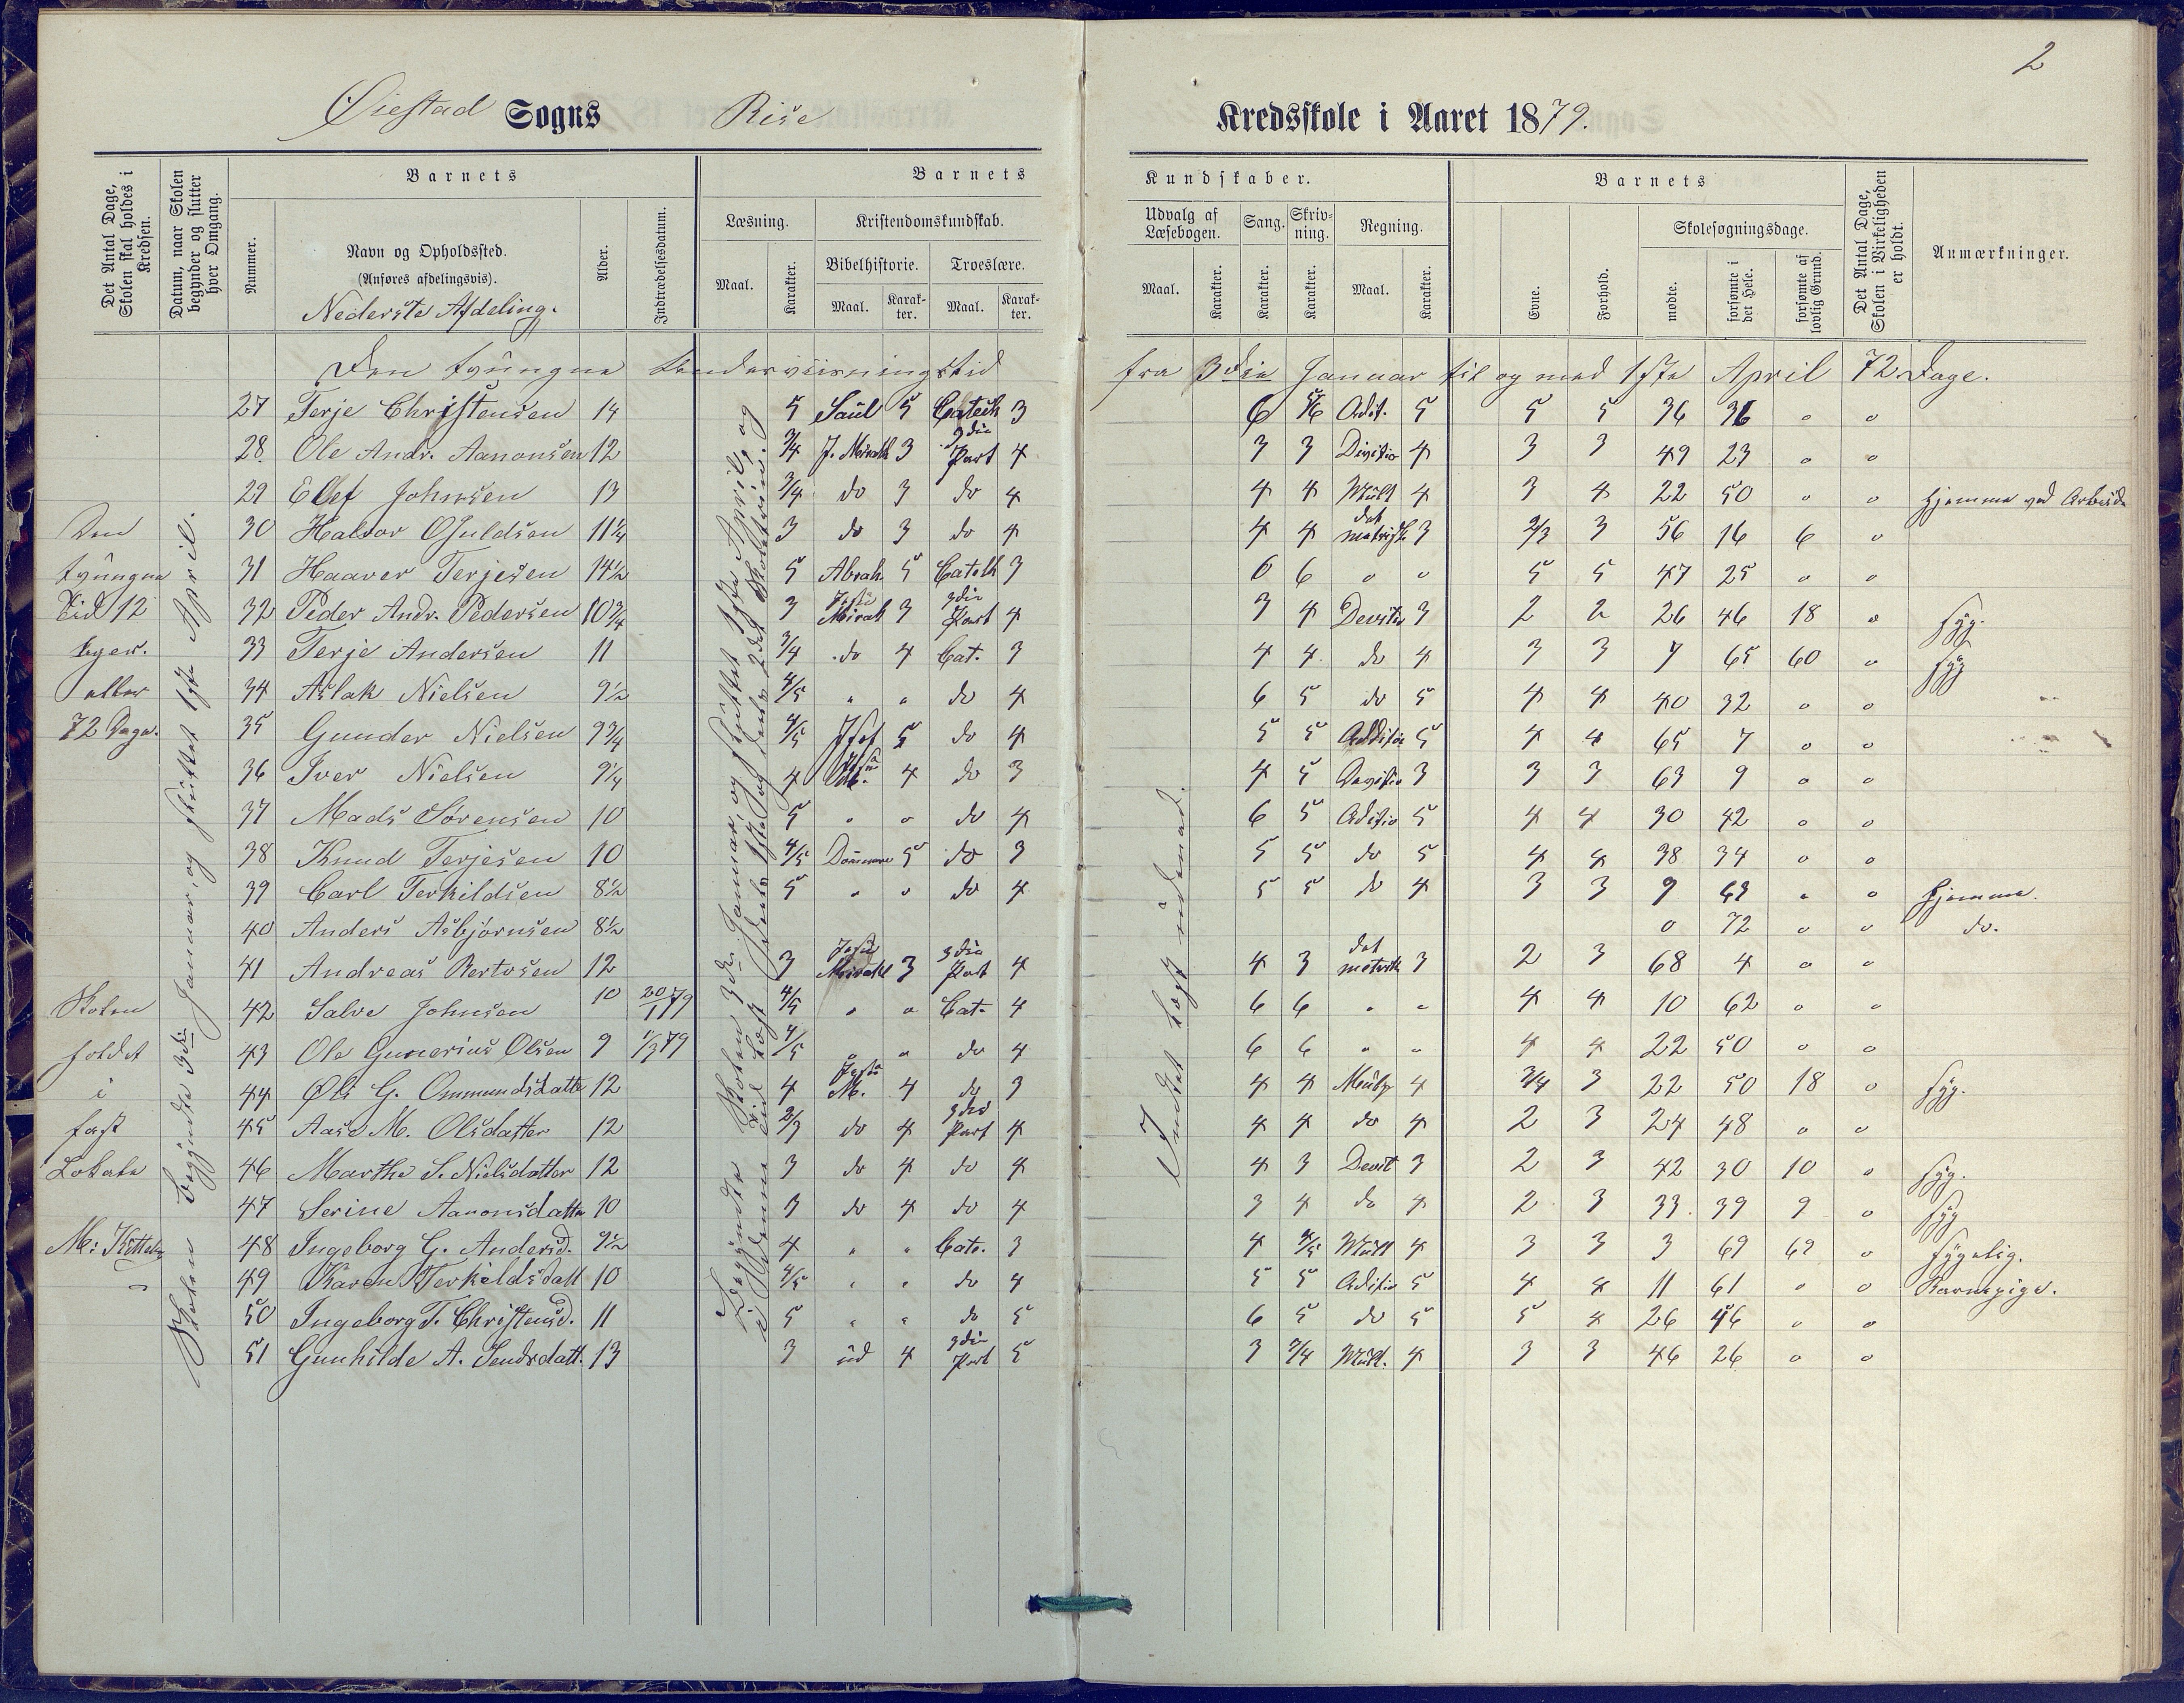 2
Øiestad Sogns Rise Kredsskole i Aaret 1879.
Det Antal Dage, Skolen skal holdes i Kredsen.
Datum, naar Skolen begynder og slutter hver Omgang.
Nummer.
Barnets
Navn og Opholdssted.
(Anføres afdelingsvis).
Nederste Afdeling.
Alder.
Indtrædelsesdatum.
Barnets Kundskaber.
Læsning.
Maal.
Karakter.
Kristendomskundskab.
Bibelhistorie.
Maal.
Karakter.
Troeslære.
Maal.
Karakter.
Udvalg af Læsebogen.
Maal.
Karakter.
Sang.
Karakter.
Skrivning.
Karakter.
Regning.
Maal.
Karakter.
Barnets
Evne.
Forhold.
Skolesøgningsdage.
mødte.
forsømte i det Hele.
forsømte af lovlig Grund.
Det Antal Dage, Skolen i Virkeligheden er holdt.
Anmærkninger.
Den tvungne Undervisningstid fra 3die Januar til og med 1ste April 72 Dage.
27 Terje Christensen 14 5 Saul 5 Catech 3 6 5/6 Adit. 5 5 5 36 36 o o
28. Ole Andr. Aanonsen 12 3/4 J. Mirakl 3 3die Part 4 3 3 Divisio 4 3 3 49 23 o o
29 Elef Johnsen 13 3/4 do 3 do 4 4 4 Mult 4 3 4 22 50 o o Hjemme ved Arbeide
30 Halvor Osuldsen 11 1/4 3 do 3 do 4 4 4 det metriske 3 2/3 3 56 16 6 o
31 Haaver Terjesen 14 1/2 5 Abrah. 5 Catech 3 6 6 o o 5 5 47 25 o o
32 Peder Andr. Pedersen 10 3/4 3 Jesu Mirakl 3 3die Part 4 3 4 Devisio 3 2 2 26 46 18 o syg.
33 Terje Andersen 11 3/4 do 4 Cat. 3 4 4 do 4 3 3 7 65 60 o syg
34 Aslak Nielsen 9 1/2 4/5 " " do 4 6 5 do 5 4 4 40 32 o o
35 Gunder Nielsen 9 3/4 4/5 5 do 4 5 5 Additio 5 4 4 65 7 o o
36 Iver Nielsen 9 1/4 4 4 do 3 4 5 Devisio 3 3 3 63 9 o o
37 Mads Sørensen 10 5 " o do 4 6 5 Aditio 5 4 4 30 42 o o
38 Knud Terjesen 10 4/5 Dommere 5 do 3 5 5 do 5 4 4 38 34 o o
39 Carl Terkildsen 8 1/2 5 " o do 4 5 5 do 4 3 3 9 63 o o Hjemme.
40 Anders Asbjørnsen 8 1/2 o 72 o o do.
41 Andreas Bertosen 12 3 Jesu Mirakl 3 3die Part 4 4 3 det metrisk 3 2 3 68 4 o o
42 Salve Johnsen 10 20/1 79 4/5 " o Cat. 4 6 6 " " 4 4 10 62 o o
43 Ole Gunerius Olsen 9 1/3 79 4/5 " " do 4 6 6 " " 4 4 22 50 o o
44 G. Ommundsdatter 12 4 Jesu M. 4 do 3 4 4 Mult 4 3/4 3 22 50 18 o syg.
45 Aase M. Olsdatter 12 2/3 do 4 3die Part 4 4 4 do 4 2 3 24 48 o o
46 Marthe S. Nielsdatter 12 3 do 4 do 4 4 3 Devit 3 2 3 42 30 10 o syg.
47 Serine Aanonsdatter 10 3 do 4 do 4 3 4 do 4 2 3 33 39 9 o syg
48 Ingeborg G. Andersd. 9 1/2 4 " " Cate. 3 4 4/5 Mult 4 3 3 3 69 69 o sygelig.
49 Karen Terkildsdatt 10 4/5 " " do 4 5 5 Aditio 5 4 4 11 61 o o Barnepige.
50 Ingeborg T. Christensd. 11 5 " " do 5 6 5 do 5 5 4 26 46 o o
51 Gunhilde A. Sendsdatt. 13 3 ud 4 3die Part 5 3 3/4 Mult. 4 3 3 46 26 o o
Den
tvungne
Tid 12
Uger.
eller
72 Dage.
Skolen
holdet
i
fast
Lokale
Skolen begyndte 3die Januar, og sluttet 1ste April.
Begyndte Skolen 3die Januar, og sluttet 1ste April, og
i
Intet læst udenad.